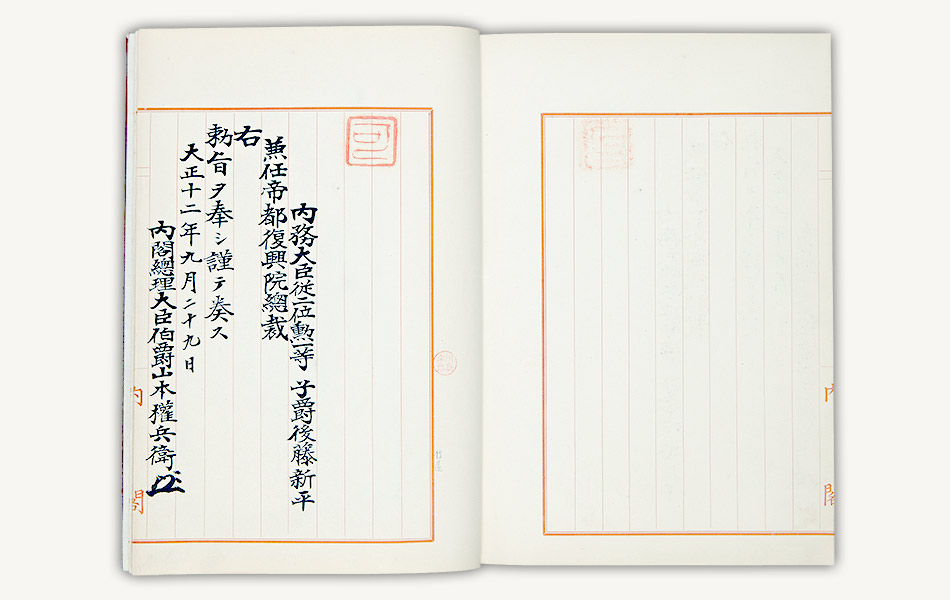 内務大臣従二位勲一等 子爵後藤新平
兼任帝都復興院總裁
右
勅旨ヲ奉シ謹テ奏ス
大正十二年九月二十九日
内閣總理大臣伯爵山本權兵衛
内閣
内閣